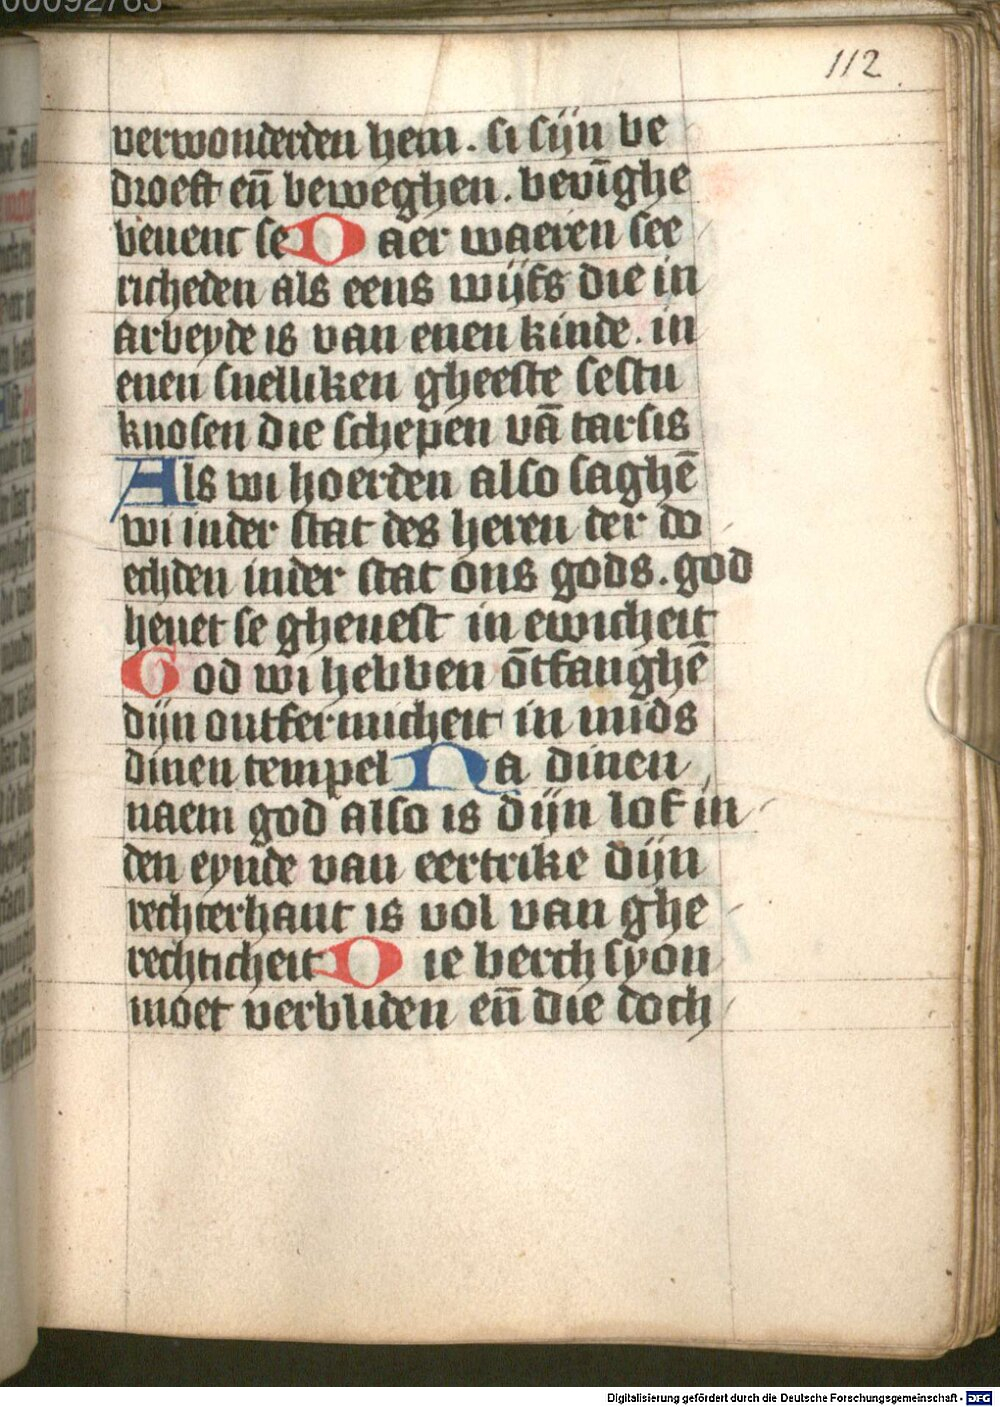 112
verwonderden hem. si sijn be
droeft en̄ beweghen. bevīghe
beuent se Daer waeren see
richeden als eens wijfs die in
arbeyde is van enen kinde. in
enen snelliken gheeste sestu
knosen die schepen vā tarsis
Als wi hoerden also saghē
wi inder stat des heren der do
echden inder stat ons gods. god
heuet se gheuest in ewicheit
God wi hebben ōtfanghē
dijn ontfermicheit in mids
dinen tempel Na dinen
naem god also is dijn lof in
den eynde van eertrike dijn
rechterhant is vol van ghe
rechticheit Die berch syon
moet verbliden en̄ die doch
Digitalisierung gefördert durch die Deutsche Forschungsgemeinschaft - DFG